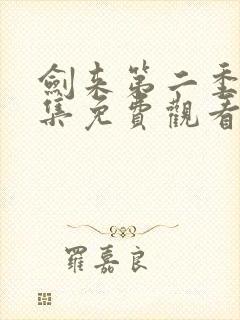 劍來第二季
集免費觀看
羅嘉良